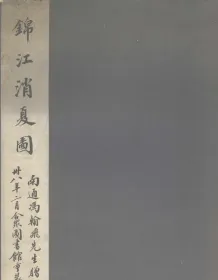 錦江消夏圖
南通馮翰飛先生贈
卅八年二月合眾圖書館重裝